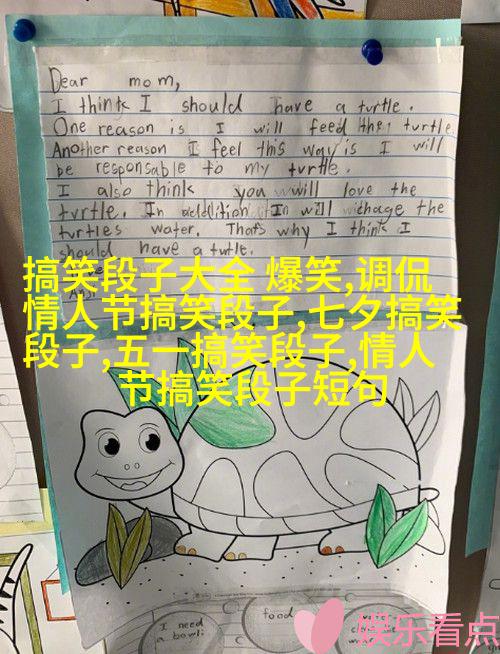 Dear mom,
I think I should have a turtle.
One reason is I will feed the turtle.
Another reason I feel this way is I will
be responsable to my turtle.
I also think you will love the
turtle. In addition In will chage the
turtles water. That's why I think I
should have a turtle.
搞笑段子大全 爆笑,调侃
情人节搞笑段子,七夕搞笑
段子,五一搞笑段子,情人
节搞笑段子短句
I need
a bowl
food
娱乐看点